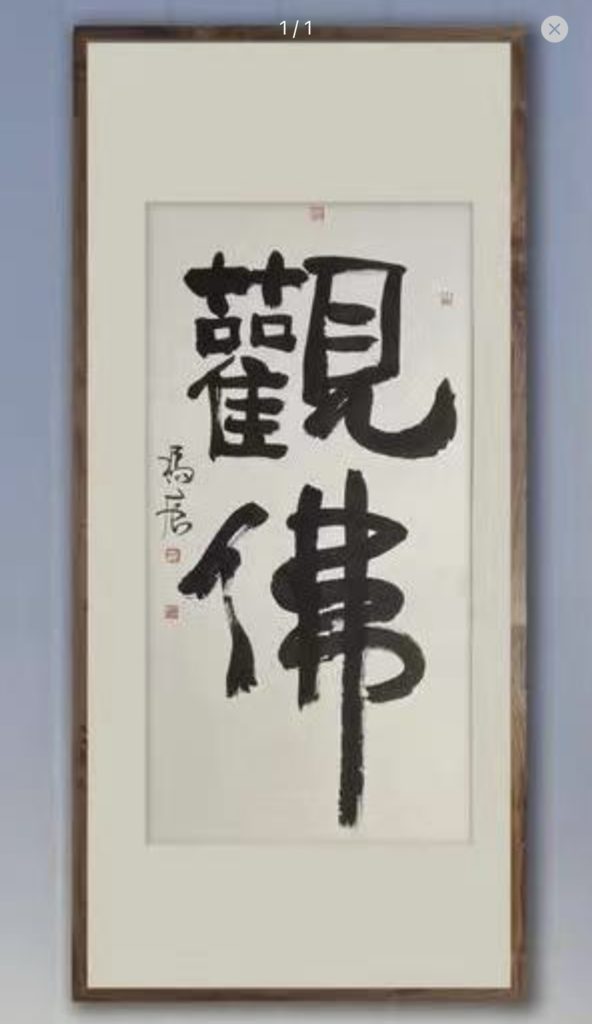 1/1
觀佛